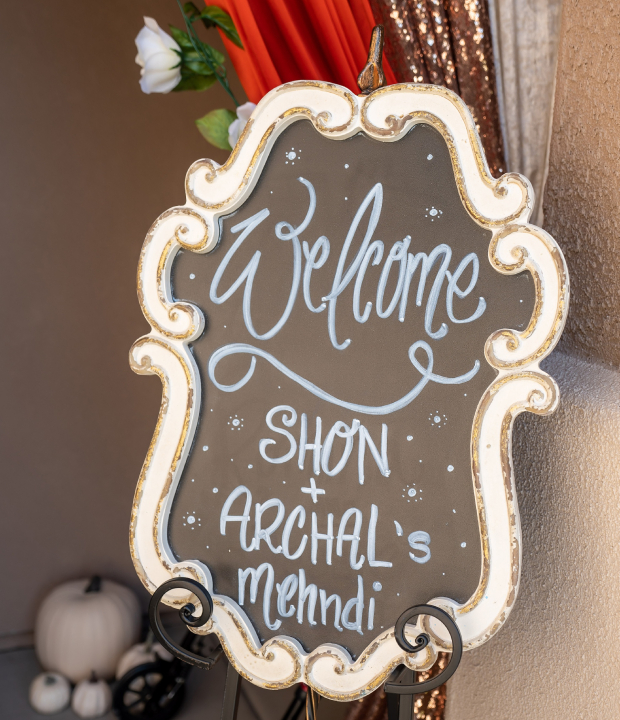 Welcome
SHON
+
ARCHAL's
Mehndi